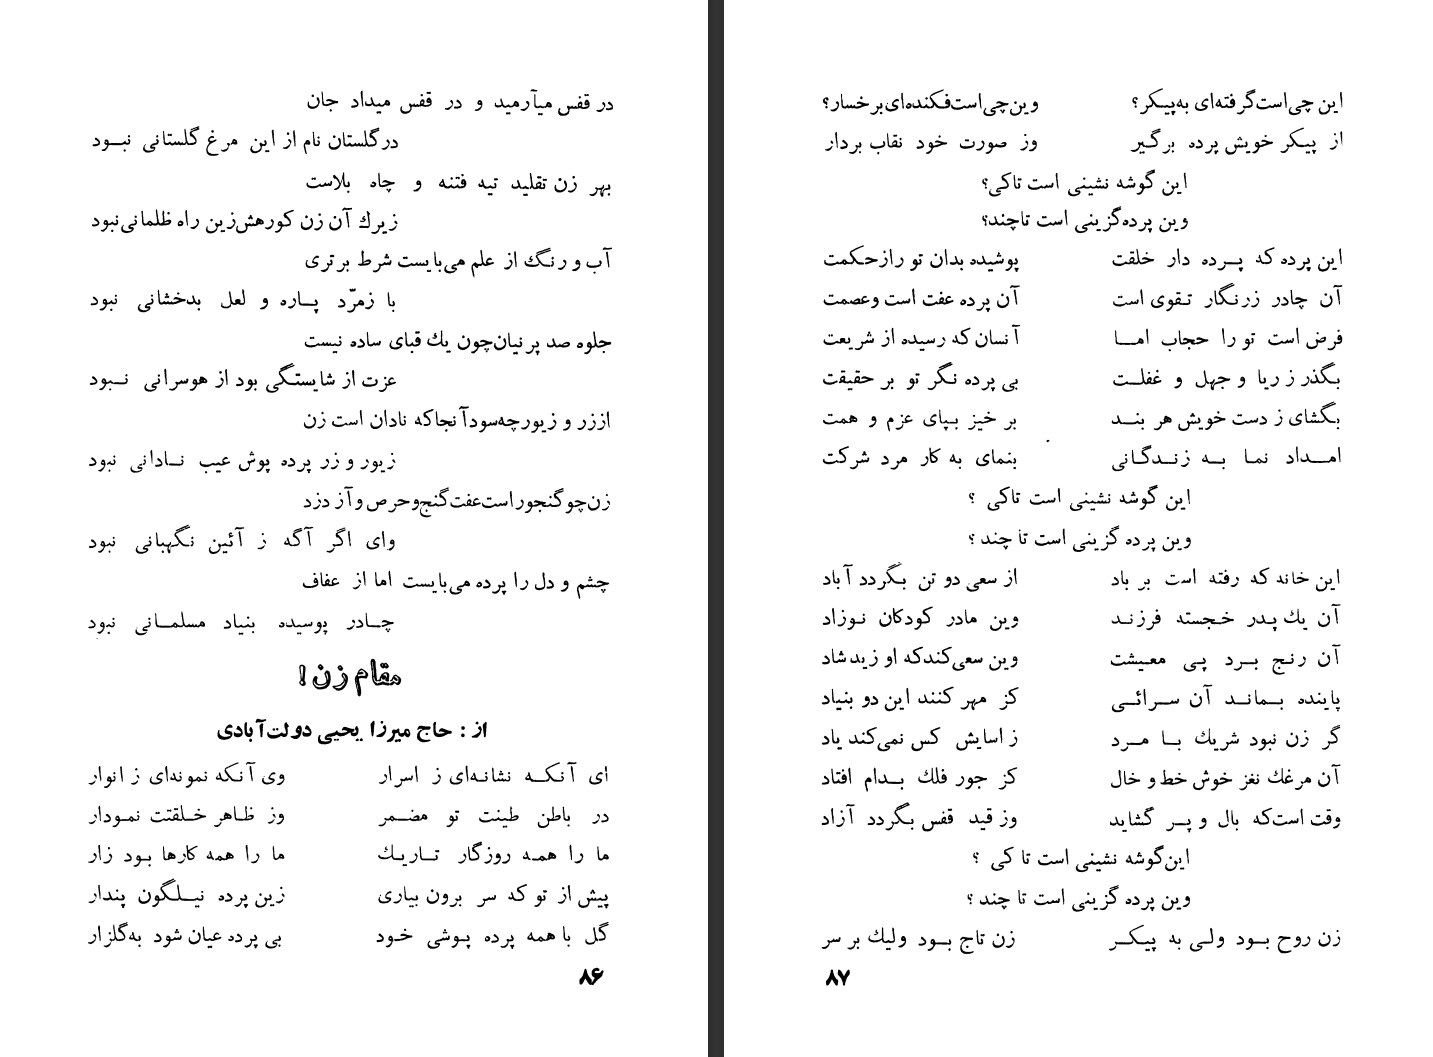 در قفس میآرمید و در قفس میداد جان
در گلستان نام از این مرغ گلستانی نبود
بهر زن تقلید تیه فتنه و چاه بلاست
زیرك آن زن کورهش زین راه ظلمانی نبود
آب و رنگ از علم می‌بایست شرط برتری
با زمرّد پاره و لعل بدخشانی نبود
جلوه صد پرنیان چون یك قبای ساده نیست
عزت از شایستگی بود از هوسرانی نبود
اززر و زیورچه‌سودآنجاکه نادان است زن
زیور و زر پرده پوش عیب نادانی نبود
زن‌چوگنجوراست‌عفت‌گنج‌وحرص وآز دزد
وای اگر آگه ز آئین نگهبانی نبود
چشم و دل را پرده می‌بایست اما از عفاف
چادر پوسیده بنیاد مسلمانی نبود
مقام زن !
از : حاج میرزا یحیی دولت‌آبادی
ای آنکه نشانه‌ای ز اسرار وی آنکه نمونه‌ای ز انوار
در باطن طینت تو مضمر وز ظاهر خلقتت نمودار
ما را همه روزگار تاریك ما را همه کارها بود زار
پیش از تو که سر برون بیاری زین پرده نیلگون پندار
گل با همه پرده پوشی خود بی پرده عیان شود به‌گلزار
۸۶
این چی‌است‌گرفته‌ای به‌پیکر؟ وین‌چی‌است‌فکنده‌ای‌برخسار؟
از پیکر خویش پرده برگیر وز صورت خود نقاب بردار
این گوشه نشینی است تاکی؟
وین پرده‌گزینی است تاچند؟
این پرده که پرده دار خلقت پوشیده بدان تو رازحکمت
آن چادر زرنگار تقوی است آن پرده عفت است وعصمت
فرض است تو را حجاب اما آنسان که رسیده از شریعت
بگذر ز ریا و جهل و غفلت بی پرده نگر تو بر حقیقت
بگشای ز دست خویش هر بند بر خیز بپای عزم و همت
امداد نما به زندگانی بنمای به کار مرد شرکت
این گوشه نشینی است تاکی ؟
وین پرده گزینی است تا چند ؟
این خانه که رفته است بر باد از سعی دو تن بگردد آباد
آن یك پدر خجسته فرزند وین مادر کودکان نوزاد
آن رنج برد پی معیشت وین سعی‌کندکه او زید شاد
پاینده بماند آن سرائی کز مهر کنند این دو بنیاد
گر زن نبود شریك با مرد ز اسایش کس نمی‌کند یاد
آن مرغك نغز خوش خط و خال کز جور فلك بدام افتاد
وقت است‌که بال و پر گشاید وز قید قفس بگردد آزاد
این‌گوشه نشینی است تا کی ؟
وین پرده گزینی است تا چند ؟
زن روح بود ولی به پیکر زن تاج بود ولیك بر سر
۸۷